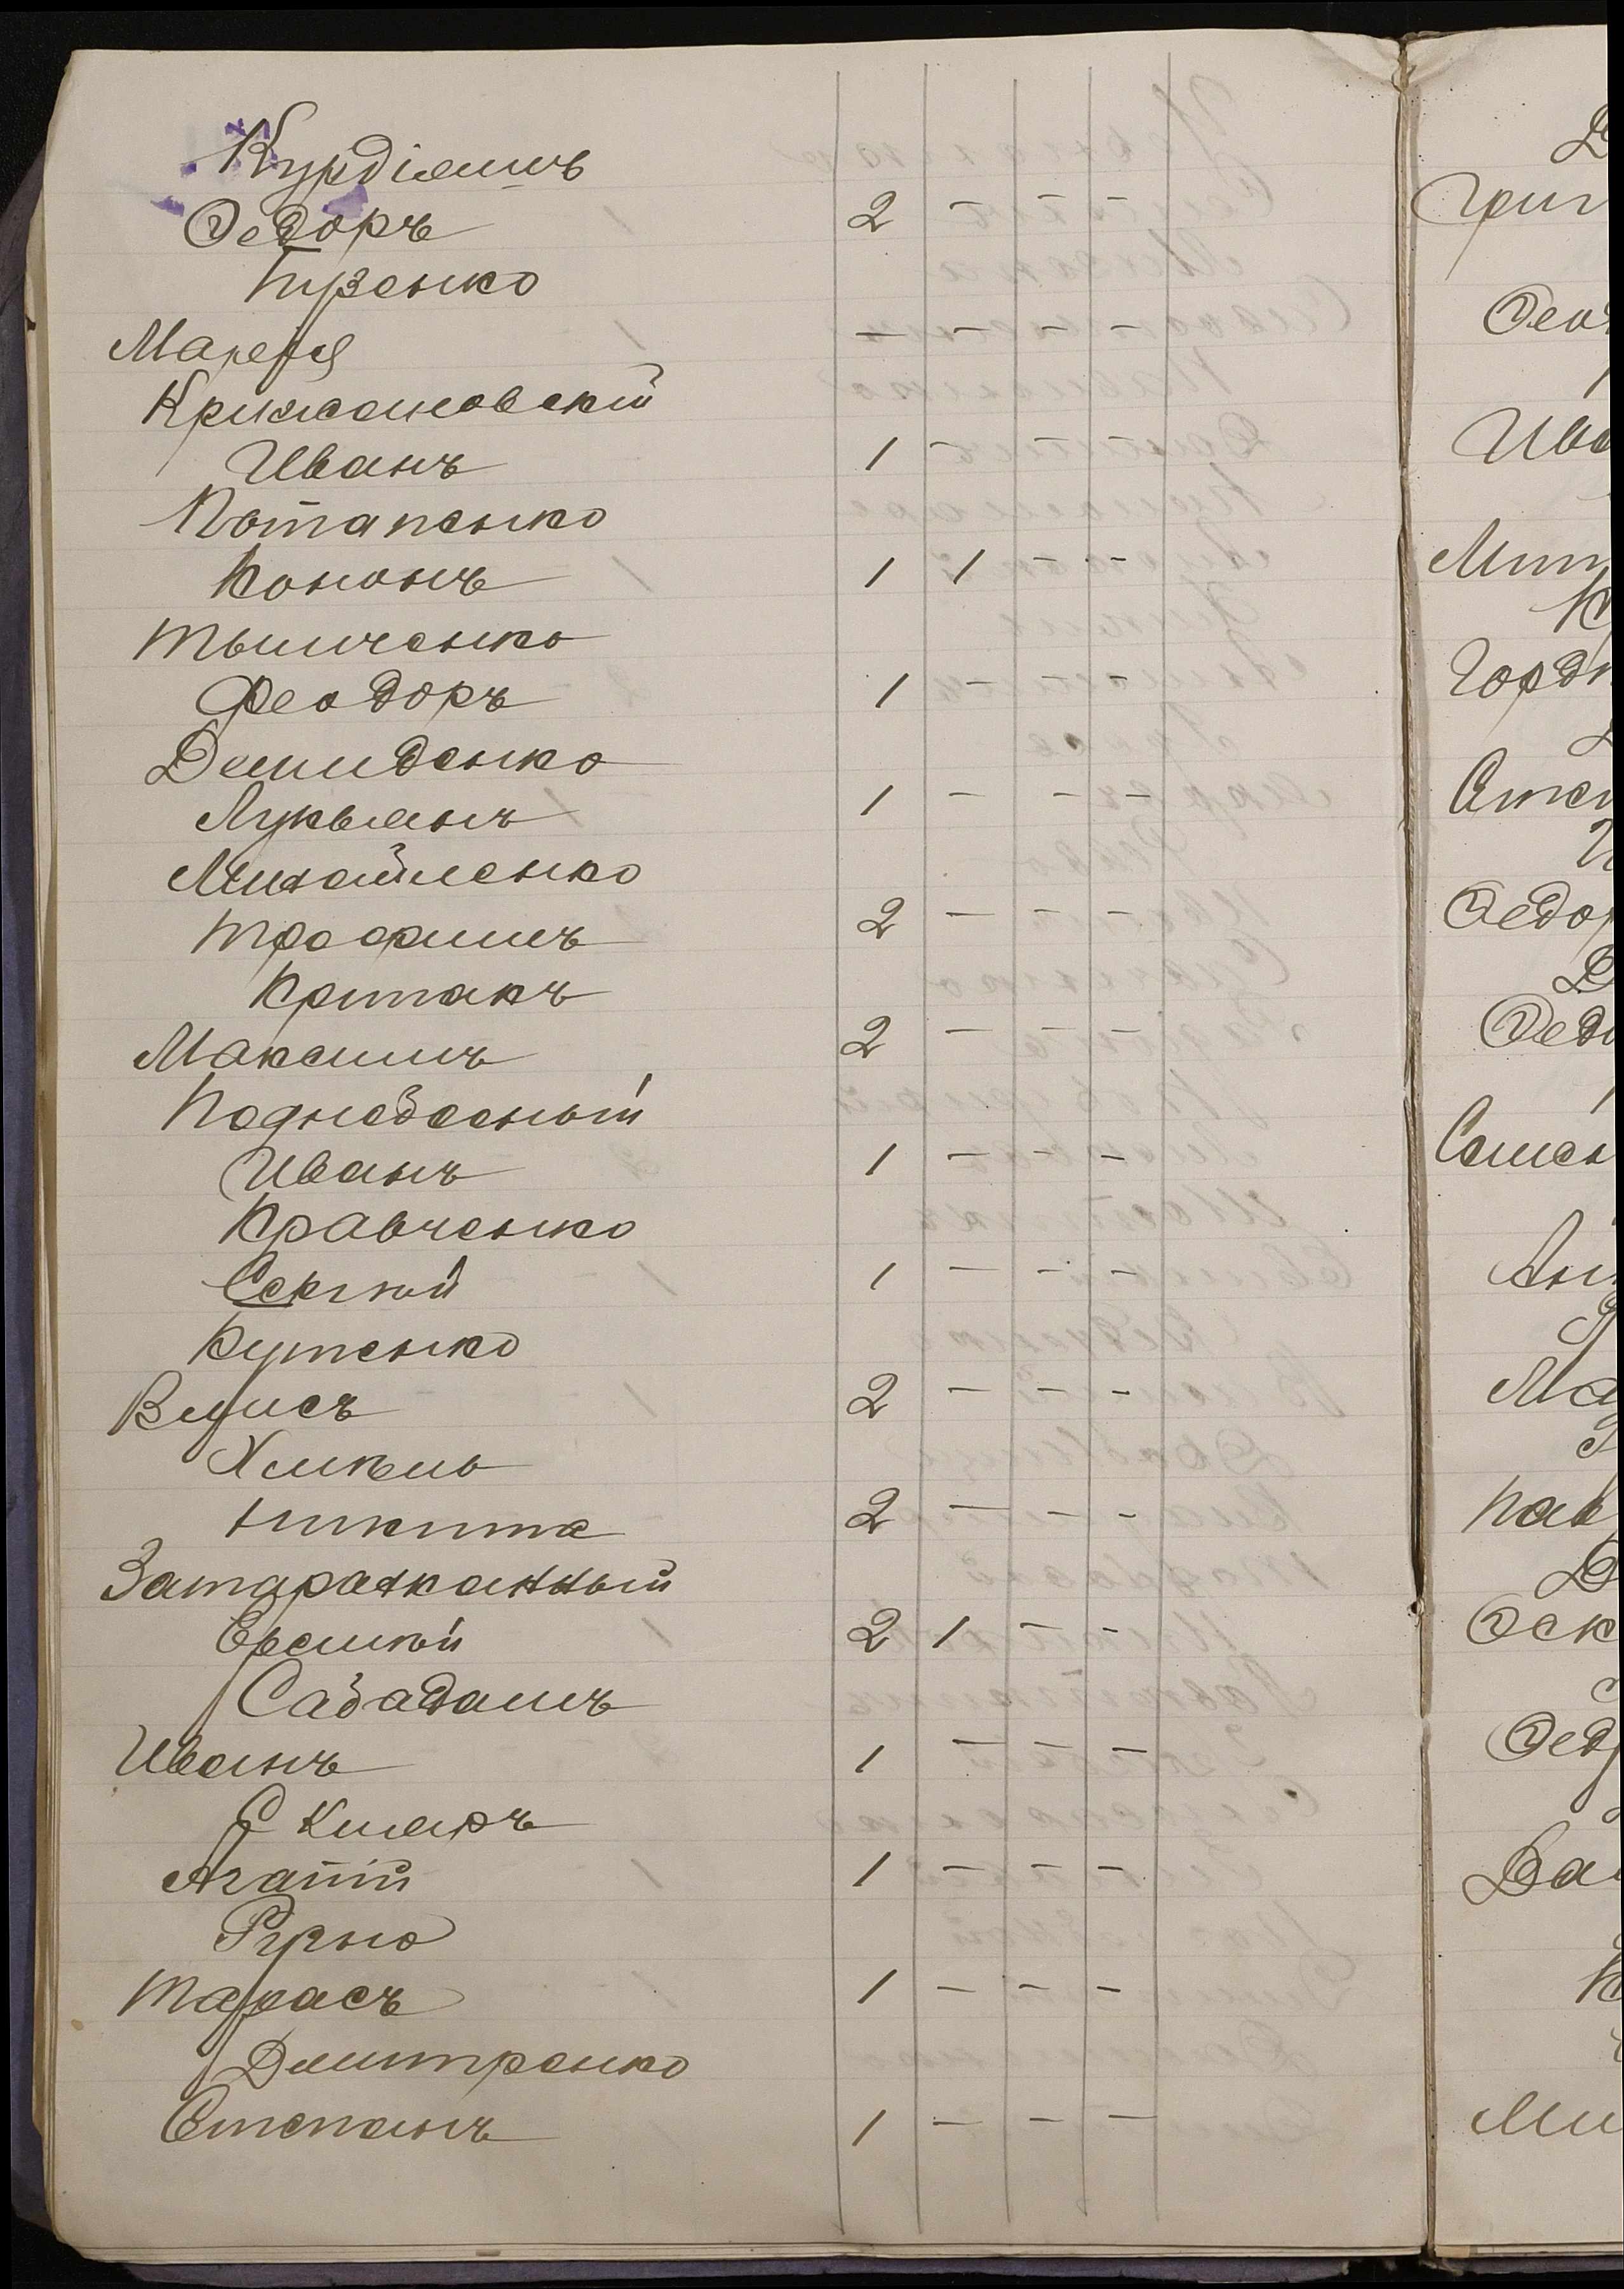 Курдіямъ
Ѳедоръ 2 - - -
Тиренко
Марефа - - - -
Крижановскій
Иванъ 1 - - -
Потапенко
Кононъ 1 1 - -
Тымченко
Феодоръ 1 - - -
Демиденко
Лукьянъ 1 - - -
Михайленко
Трофимъ 2 - - -
Критакъ
Максимъ 2 - - -
Поднебесный
Иванъ 1 - - -
Кравченко
Сергѣй 1 - - -
Кутенко
2 - - -
Хмкель
Никита 2 - - -
Затараканный
Еремѣй 2 1 - -
Сабадашъ
Иванъ 1 - - -
Скляръ
Агапій 1 - - -
Рурно
Тарасъ 1 - - -
Дмитренко
Степанъ 1 - - -
Григ
Ѳео
Ива
Мит
Горд
Степ
Ѳедор
Ѳедо
Семен
Ма
Пав
Оск
Ѳед
Ми